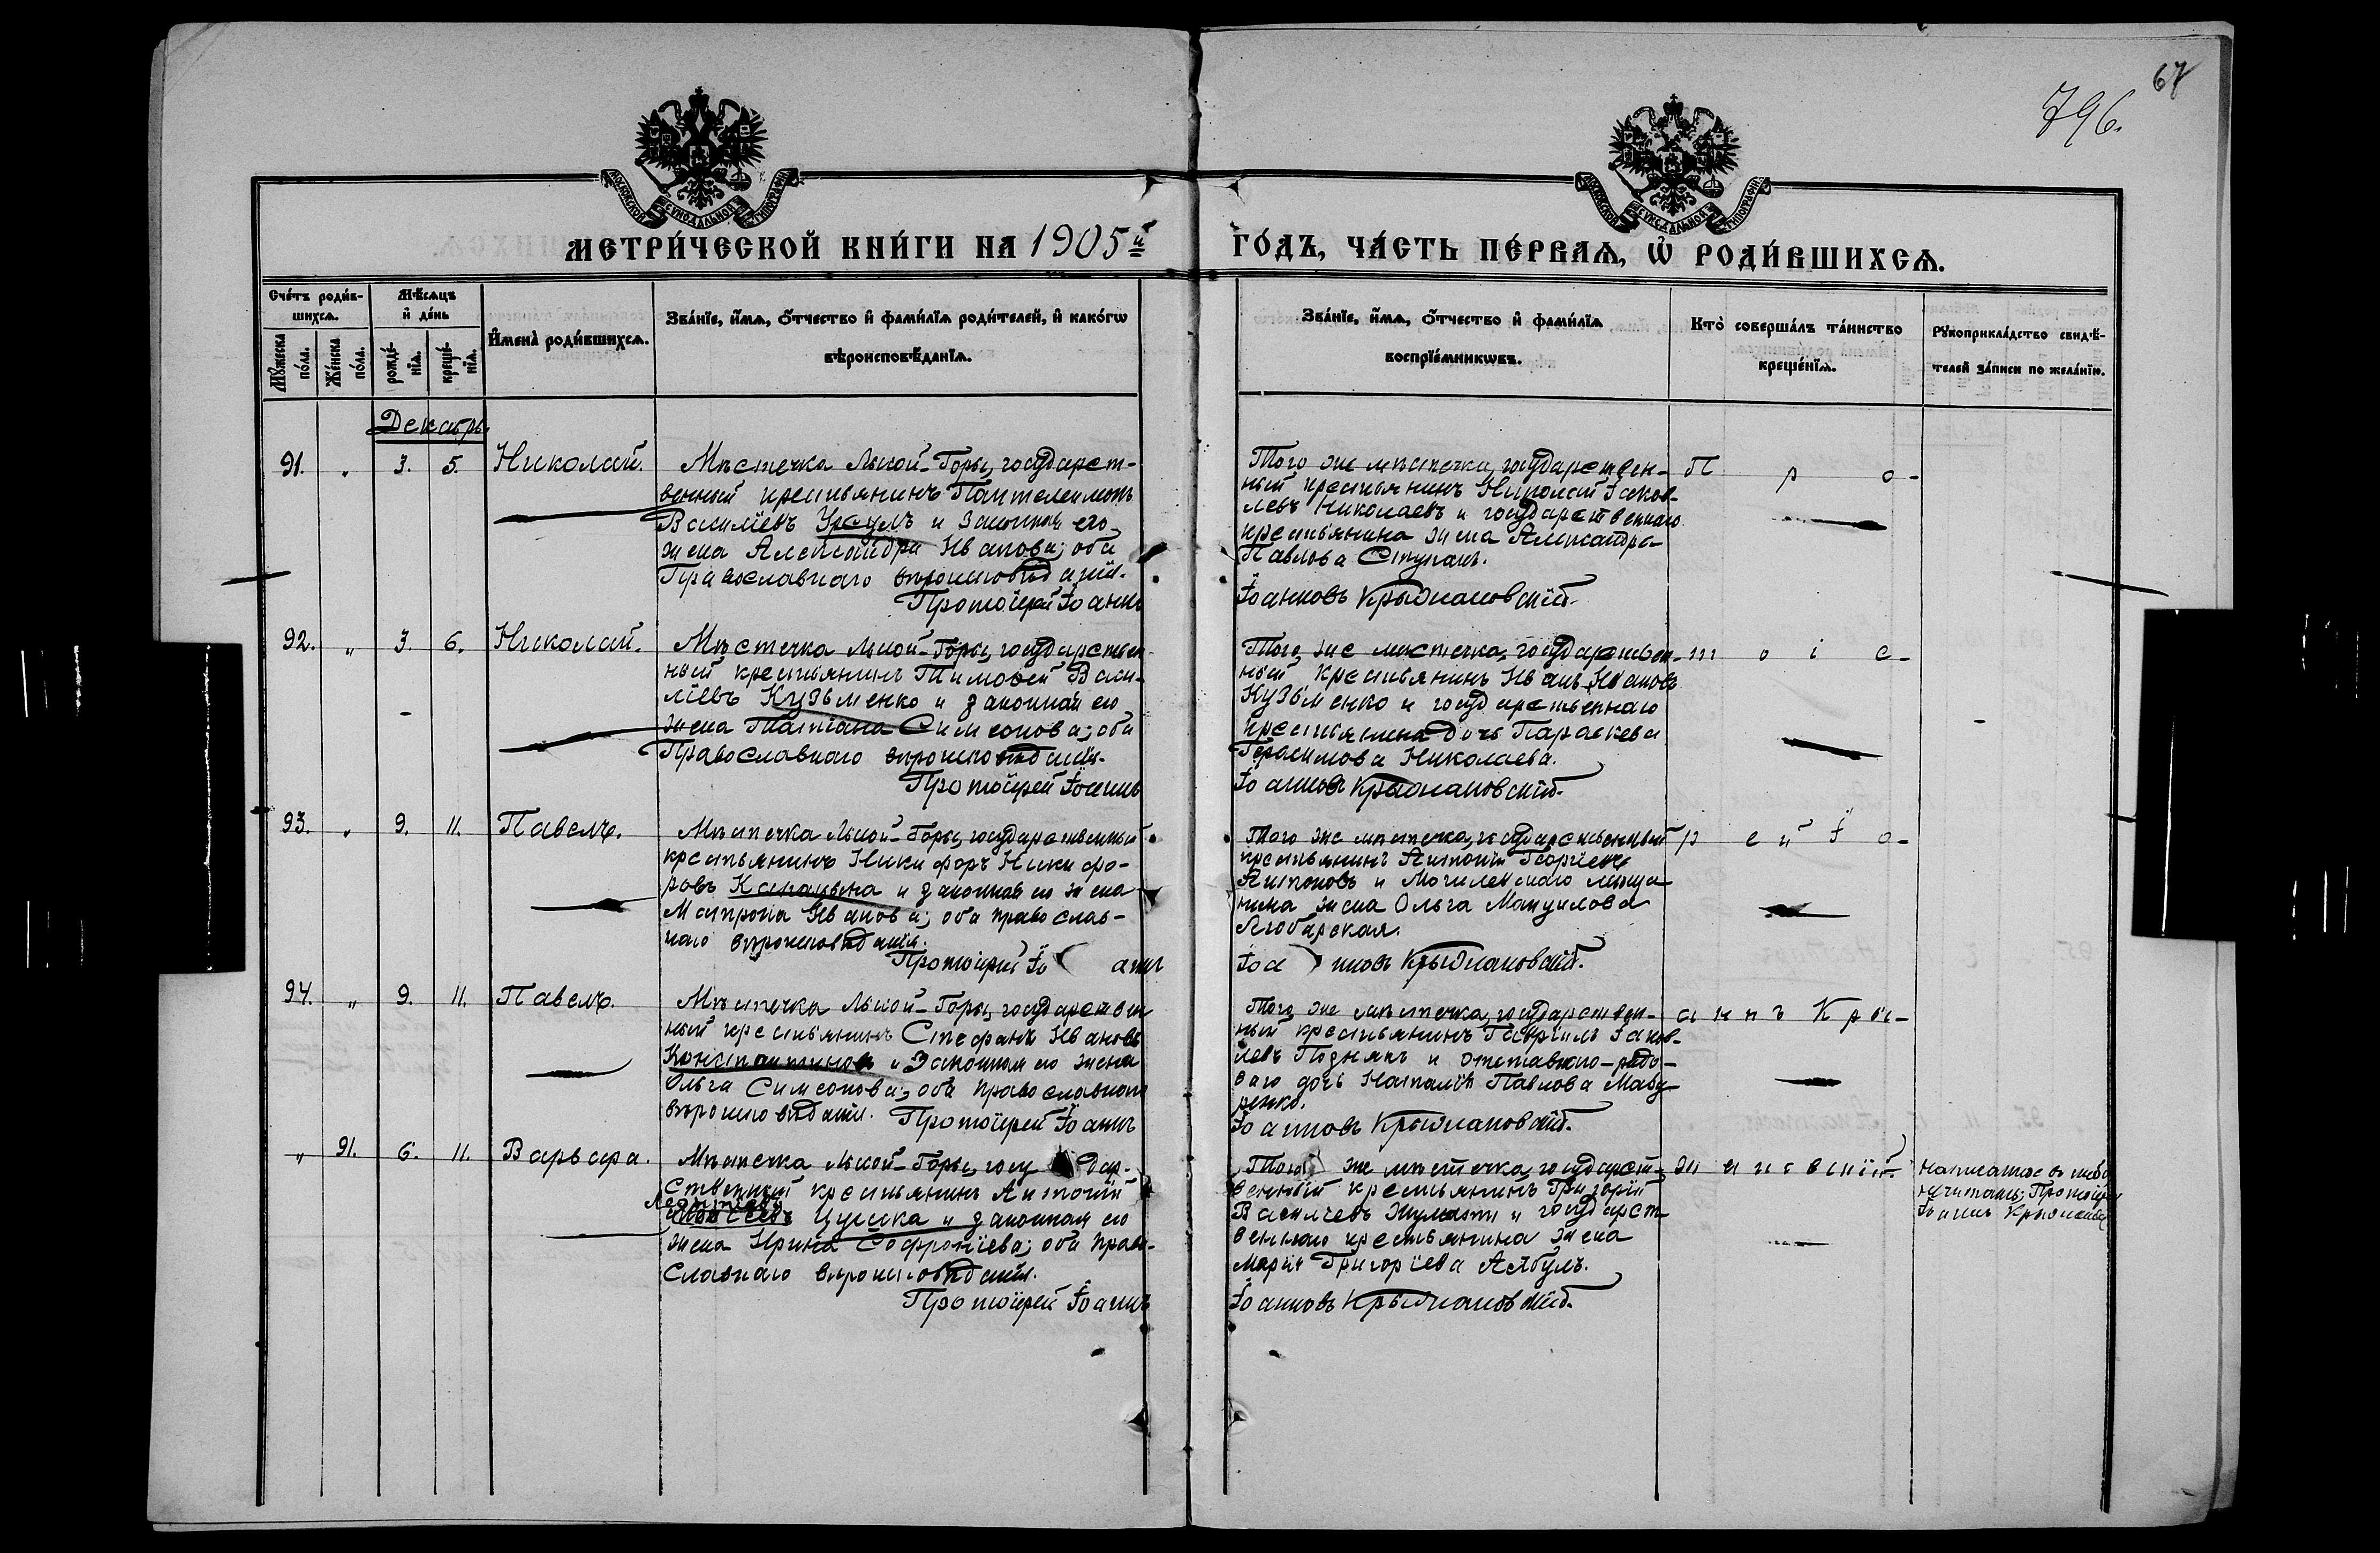 67
796.
МОСКОВСКОЙ СѴНОДАЛЬНОЙ ТИПОГРАФІИ
МОСКОВСКОЙ СѴНОДАЛЬНОЙ ТИПОГРАФІИ
МЕТРИ́ЧЕСКОЙ КНИ́ГИ НА 1905й ГО́ДЪ, ЧА́СТЬ ПЕ́РВАѦ, Ѡ҆ РОДИ́ВШИХСѦ.
Сче́тъ роди́в-
шихсѧ.
Мꙋ́жеска по́ла.
Же́нска по́ла.
Мѣ́сѧцъ
и҆ де́нь
рожде́-
нїѧ.
креще́-
нїѧ.
И҆мена̀ роди́вшихсѧ.
Зва́нїе, и҆́мѧ, ѻ҆́тчество и҆ фами́лїѧ роди́телей, и҆ како́гѡ
вѣроисповѣ́данїѧ.
Зва́нїе, и҆́мѧ, ѻ҆́тчество и҆ фами́лїѧ
воспрїе́мникѡвъ.
Кто̀ соверша́лъ та́инство
креще́нїѧ.
Рꙋкоприкла́дство свидѣ́-
телей за́писи по жела́нїю.
Декабрь
91. „ 3. 5. Николай.
Мѣстечка Лысой-Горы, государст-
венный крестьянинъ Пантелеимонъ
Василіевъ и законная его
жена Александра Иванова; оба
Православнаго вѣроисповѣданія.
Протоіерей Іоаннъ
Того же мѣстечка, государствен-
ный крестьянинъ Николай Іаков-
левъ Николаевъ и государственнаго
крестьянина жена Александра
Павлова Ступакъ.
Іоанновъ Крыжановскій.
П р о-
92. „ 3. 6. Николай.
Мѣстечка Лысой-Горы, государствен-
ный крестьянинъ Тимоѳей Васи-
ліевъ Кузьменко и законная его
жена Татіана Симеонова; оба
Православнаго вѣроисповѣданія.
Протоіерей Іоаннъ
Того же мѣстечка, государствен-
ный крестьянинъ Иванъ Ивановъ
Кузьменко и государственнаго
крестьянина дочь Параскева
Герасимова Николаева.
Іоанновъ Крыжановскій.
т о і е-
93. „ 9. 11. Павелъ.
Мѣстечка Лысой-Горы, государственный
крестьянинъ Никифоръ Никифо-
ровъ и законная его жена
Матрона Иванова; оба православ-
наго вѣроисповѣданія.
Протоіерей Іо анн
Того же мѣстечка, государственный
крестьянинъ Антоній Георгіевъ
Антоновъ и Могилевскаго мѣща-
нина жена Ольга Мануилова
Іоа нновъ Крыжановскій.
р е й І о-
94. „ 9. 11. Павелъ.
Мѣстечка Лысой-Горы, государствен
ный крестьянинъ Стефанъ Ивановъ
Константиновъ и законная его жена
Ольга Симеонова; оба православнаго
вѣроисповѣданія. Протоіерей Іоаннъ
Того же мѣстечка, государствен-
ный крестьянинъ Гавріилъ Іаков-
левъ Познякъ и отставного-рядо-
ваго дочь Наталія Павлова Мазу-
ренко.
Іоанновъ Крыжановскій.
а н н ъ К р ы-
„ 91. 6. 11. Варвара.
Мѣстечка Лысой-Горы, госу дар-
ственный крестьянинъ Антоній
Цушка и законная его
жена Ирина Софроніева; оба право-
славнаго вѣроисповѣданія.
Протоіерей Іоаннъ
Того же мѣстечка, государст-
венный крестьянинъ Григорій
Василіевъ и государст-
веннаго крестьянина жена
Марія Григоріева
Іоанновъ Крыжановскій.
ж а н о в с к і й.
читать; Протоіерей
Іоаннъ